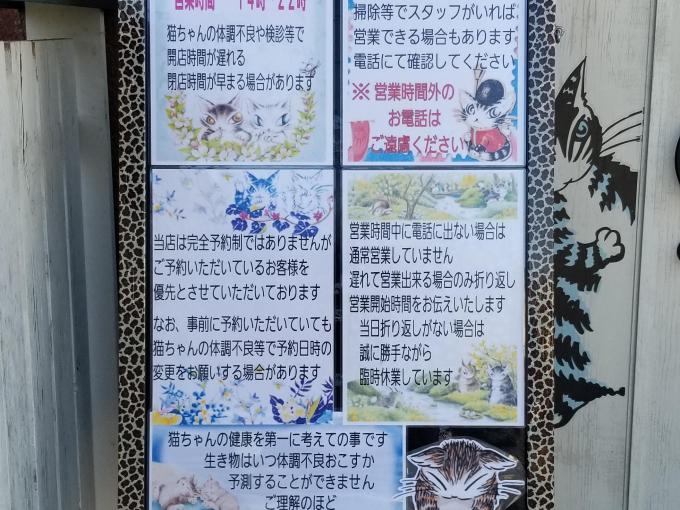 営業時間 14時~22時
猫ちゃんの体調不良や検診等で
開店時間が遅れる
閉店時間が早まる場合があります
掃除等でスタッフがいれば
営業できる場合もあります
電話にて確認してください
※ 営業時間外の
お電話は
ご遠慮ください
当店は完全予約制ではありませんが
ご予約いただいているお客様を
優先とさせていただいております
なお、事前に予約いただいていても
猫ちゃんの体調不良等で予約日時の
変更をお願いする場合があります
営業時間中に電話に出ない場合は
通常営業していません
遅れて営業出来る場合のみ折り返し
営業開始時間をお伝えいたします
当日折り返しがない場合は
誠に勝手ながら
臨時休業しています
猫ちゃんの健康を第一に考えての事です
生き物はいつ体調不良おこすか
予測することができません
ご理解のほど